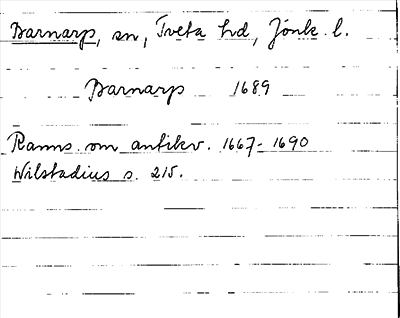 Barnarps, sn, Tveta hd, Jönk. l.
Barnarps 1689
Ranns. om antikv. 1667-1690
Wilstadius s. 215.